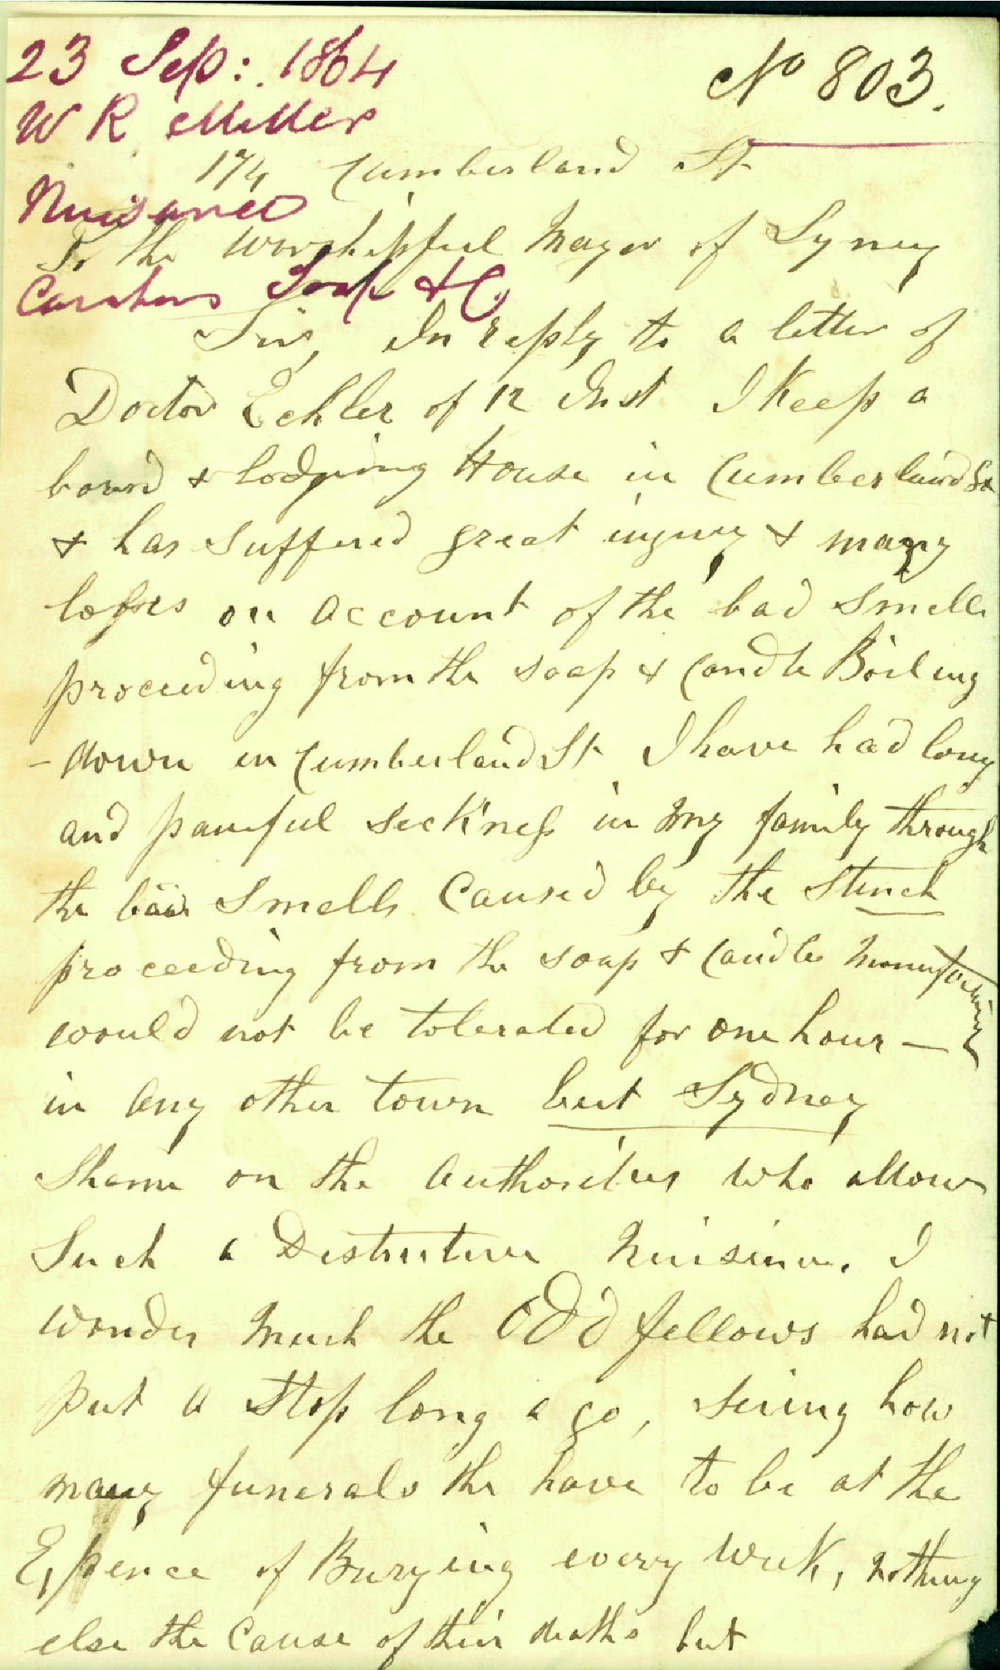 23 Sep: 1864
No 803.
W R Miller
174 Cumberland St
Nuisance
To the worshipful Mayor of Syney
Carters Soap & C.
Sir, In reply to a letter of
Doctor Echler of 12 Inst I Keep a
board & lodging House in Cumberland St
& has suffered great injury & many
losses on account of the bad smells
proceeding from the soap & Candle Boiling
- down in Cumberland St I have had long
and painful sickness in my family through
the bad smells Caused by the Stench
proceeding from the soap & Candle Manufactuing
would not be tolerated for one hour —
in any other town but Sydney
Shame on the Authorities who allows
Such a Distructive Nuisince. I
wonder much the Odd fellows had not
put a stop long a go, seeing how
many funerals the have to be at the
Expence of Burying every week, nothing
else the Cause of their deaths but